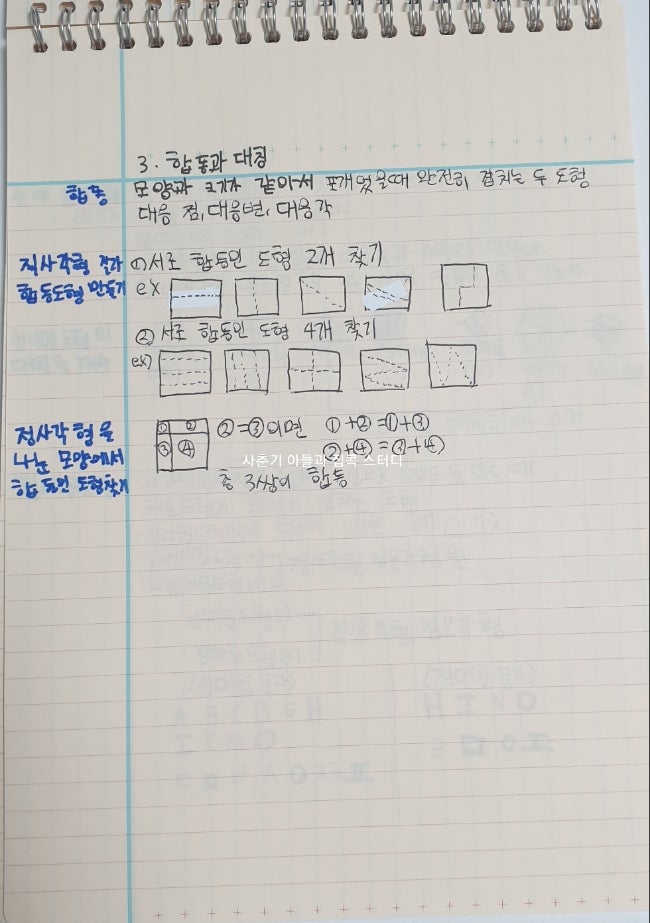 3. 합동과 대칭
합동 모양과 크기가 같아서 포개었을때 완전히 겹치는 두 도형
대응 점, 대응변, 대응각
직사각형 잘라 ①서로 합동인 도형 2개 찾기
합동도형 만들기 ex
② 서로 합동인 도형 4개 찾기
ex)
정사각형을 ① ② ②=③이면 ①+②=①+③
나눈 모양에서 ③ ④ ②+④=③+④
사춘기 아들과 집콕 스터디
합동인 도형찾기 총 3쌍이 합동